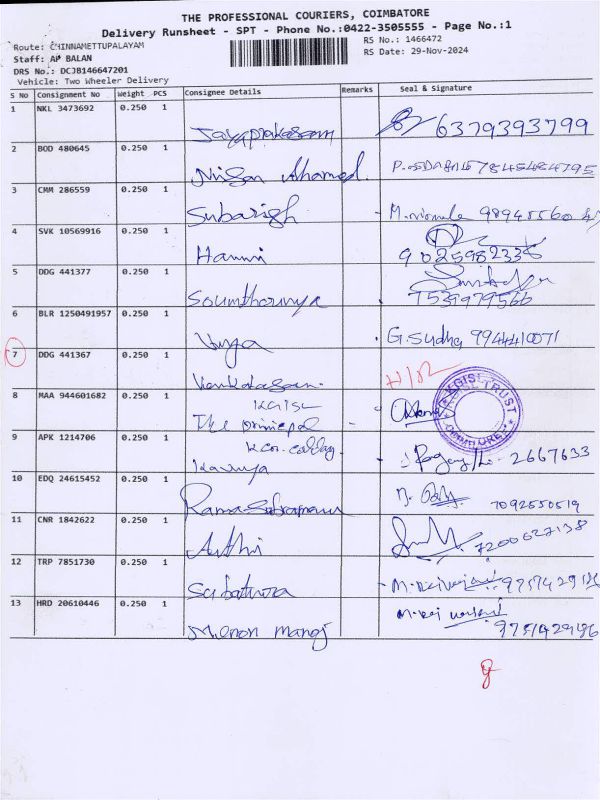 THE PROFESSIONAL COURIERS, COIMBATORE
Delivery Runsheet - SPT - Phone No.:0422-3505555 - Page No.:1
Route: CHINNAMETTUPALAYAM
RS No.: 1466472
Staff: AP BALAN
RS Date: 29-Nov-2024
DRS No.: DCJB146647201
Vehicle: Two Wheeler Delivery
S No Consignment No Weight PCS Consignee Details Remarks Seal & Signature
1 NKL 3473692 0.250 1 Jayaprakasam 6379393799
2 BOD 480645 0.250 1 Ahamed 7845484795
3 CMM 286559 0.250 1 Subarish
4 SVK 10569916 0.250 1 9025982336
5 DDG 441377 0.250 1 Soumthourya 7539979566
6 BLR 1250491957 0.250 1 G. Sudha 9944410071
7 DDG 441367 0.250 1
8 MAA 944601682 0.250 1 The principal
KGISL TRUST
COIMBATORE
9 APK 1214706 0.250 1 Kavuya 2667633
10 EDQ 24615452 0.250 1 7092550519
11 CNR 1842622 0.250 1 Authi 7200627138
12 TRP 7851730 0.250 1
13 HRD 20610446 0.250 1 Menon manoj 9751429186